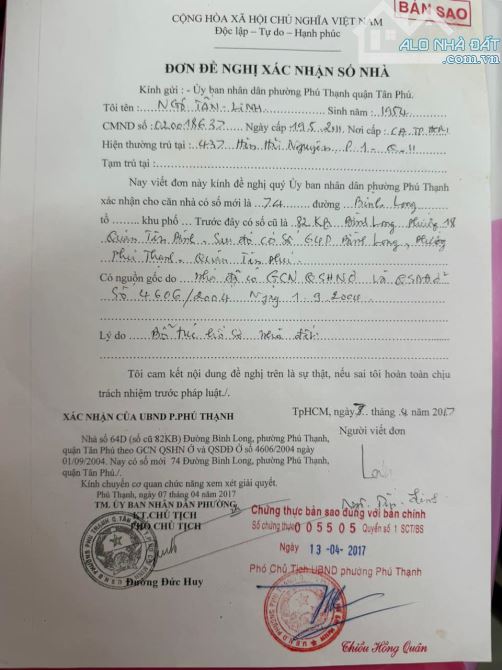 BẢN SAO
ALO NHÀ ĐẤT
CỘNG HÒA XÃ HỘI CHỦ NGHĨA VIỆT NAM
Độc lập – Tự do – Hạnh phúc
ĐƠN ĐỀ NGHỊ XÁC NHẬN SỐ NHÀ
Kính gửi : - Ủy ban nhân dân phường Phú Thạnh quận Tân Phú.
Tôi tên : NGÔ TẤN LINH Sinh năm : 1954
CMND số : 020018637 Ngày cấp 19.5.2011. Nơi cấp : CA.TP.HCM
Hiện thường trú tại : 437 Hàn Hải Nguyên P.1 - Q.11
Tạm trú tại :
Nay viết đơn này kính đề nghị quý Ủy ban nhân dân phường Phú Thạnh
xác nhận cho căn nhà có số mới là : 74 đường Bình Long
tổ khu phố Trước đây có số cũ là : 82 KB Bình Long, Phường 18
Quận Tân Bình, Sau đó có Số 64D Bình Long, Phường
Phú Thạnh, Quận Tân Phú
Có nguồn gốc do nhà đã có GCN QSHNỞ và QSDĐỞ
Số 4606/2004 Ngày 1.9.2004
Lý do Bổ túc hồ sơ nhà đất
Tôi cam kết nội dung đề nghị trên là sự thật, nếu sai tôi hoàn toàn chịu
trách nhiệm trước pháp luật./.
TpHCM, ngày 7. tháng 4 năm 2017
XÁC NHẬN CỦA UBND P.PHÚ THẠNH
Người viết đơn
Nhà số 64D (số cũ 82KB) Đường Bình Long, phường Phú Thạnh,
quận Tân Phú theo GCN QSHN Ở và QSDĐ Ở số 4606/2004 ngày
01/09/2004. Nay có số mới 74 Đường Bình Long, phường Phú Thạnh,
quận Tân Phú./.
Kính chuyển cơ quan chức năng xem xét giải quyết.
Phú Thạnh, ngày 07 tháng 04 năm 2017
TM. ỦY BAN NHÂN DÂN PHƯỜNG
KT.CHỦ TỊCH
PHÓ CHỦ TỊCH
Ngô Tấn Linh
Đường Đức Huy
Chứng thực bản sao đúng với bản chính
Số chứng thực 005505 Quyển số 1 SCT/BS
Ngày 13-04-2017
Phó Chủ Tịch UBND phường Phú Thạnh
Thiều Hồng Quân